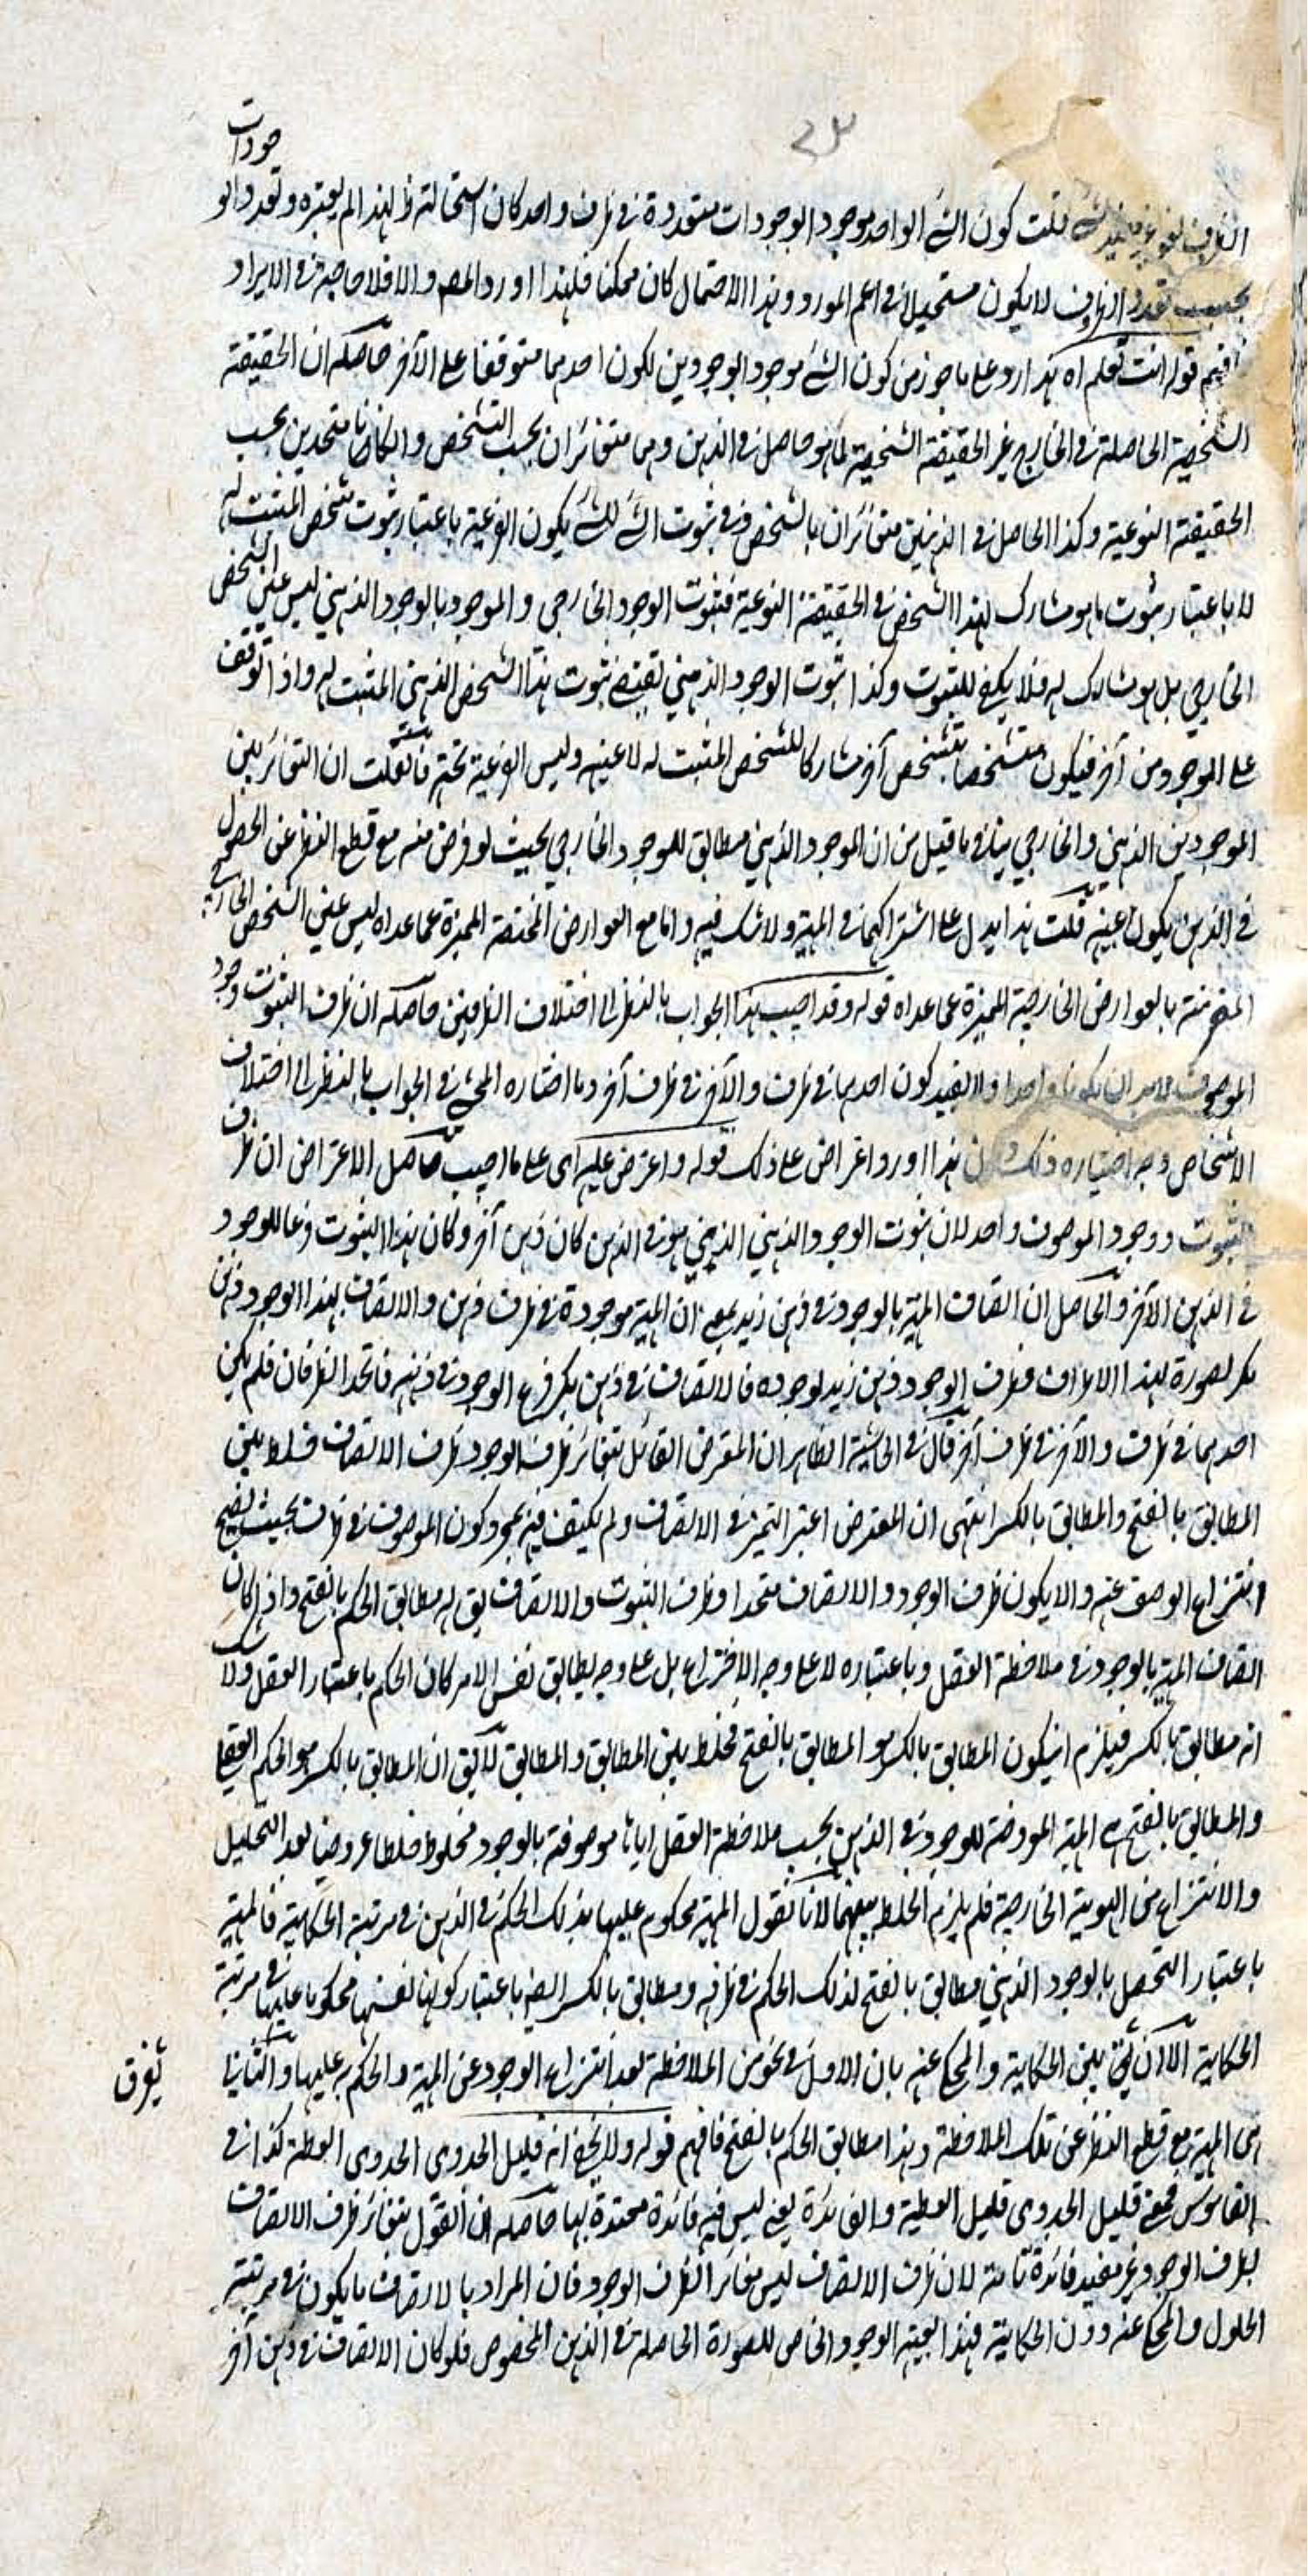 جودات
قلت كون الشئ الواحد موجودا بوجودات متعددة في ظرف واحد كان استحالته ظ لهذا لم يعتبره وتعدد الو
بحسب تعدد الظروف لا يكون مستحيلا في اعم المورد وهذا الاحتمال كان ممكنا فلهذا اورد المصـ والا فلا حاجة في الايراد
فافهم قوله انت تعلم اه هذا رد على ما جوز من كون الشئ موجودا بوجودين لكون احدهما متوقفا على الآخر حاصله ان الحقيقة
الشخصية الحاصلة في الخارج غير الحقيقة الشخصية لما هو حاصل في الذهن وهما متغائران بحسب التشخص وان كانا متحدين بحسب
الحقيقة النوعية وكذا الحاصل في الذهنين متغائران بالشخص وفي ثبوت الشئ للشئ يكون الفرعية باعتبار ثبوت شخص المثبت له
لا باعتبار ثبوت ما هو مشارك لهذا الشخص في الحقيقة النوعية فثبوت الوجود الخارجي والموجود بالوجود الذهني ليس عين الشخص
الخارجي بل هو مشارك له فلا يكفي للثبوت وكذا ثبوت الوجود الذهني يقتضي ثبوت هذا الشخص الذهني المثبت له واذا توقف
على الموجود من آخر فيكون متشخصا بتشخص آخر مشاركا للشخص المثبت له لا عينه وليس الفرعية بحتة فان قلت ان التغائر بين
الموجودين الذهني والخارجي ينافي ما قيل من ان الموجود الذهني مطابق للموجود الخارجي بحيث لو فرض منه مع قطع النظر عن الحصول
في الذهن يكون عينه قلت هذا يدل على اشتراكهما في المهية ولا شك فيه واما مع العوارض المختصة المميزة عما عداه ليس عين الشخص الخارجي
بالعوارض الخارجية المميزة عما عداه قوله وقد اجيب هذا الجواب بالنظر الى اختلاف الظرفين حاصله ان ظرف الثبوت وجود
الموصوف لابد ان يكونا واحدا ولا يفيد كون احدهما في ظرف والآخر في ظرف آخر وما اختاره المحشي في الجواب بالنظر الى اختلاف
الاشخاص وجه اختياره ذلك هذا اورد اعتراض على ذلك قوله واعترض عليه اى على ما اجيب حاصل الاعتراض ان ظرف
الثبوت ووجود الموصوف واحد لان ثبوت الوجود الذهني الذي هو في الذهن كان ذهن آخر وكان هذا الثبوت فرعا للوجود
في الذهن الآخر والحاصل ان اتصاف المهية بالوجود في ذهن زيد بمعنى ان المهية موجودة في ظرف ذهن والاتصاف بهذا الوجود ذهن
بكر فظرف الوجود ذهن زيد لوجوده فالاتصاف في ذهن بكر فرع الوجود في ذهنه فاتحد الظرفان فلم يكن
احدهما في ظرف والآخر في ظرف آخر قال في الحاشية الظاهر ان المعترض القائل بتغائر ظرف الوجود ظرف الاتصاف خلط بين
المطابق بالفتح والمطابق بالكسر انتهى ان المعترض اعتبر التميز في الاتصاف ولم يكتف فيه بمجرد كون الموصوف في ظرف بحيث يصح
انتزاع الوصف عنه والا يكون ظرف الوجود والاتصاف متحدا وظرف الثبوت والاتصاف يق له مطابق الحكم بالفتح واذا كان
اتصاف المهية بالوجود في ملاحظة العقل وباعتباره لا على وجه الاختراع بل على وجه يطابق نفس الامر كان الحكم باعتبار العقل ولا شك
انه مطابق بالكسر فيلزم ان يكون المطابق بالكسر هو المطابق بالفتح فخلط بين المطابق والمطابق لا يق ان المطابق بالكسر هو الحكم
والمطابق بالفتح هي المهية المعروضة للوجود في الذهن بحسب ملاحظة العقل اياها موصوفة بالوجود مخلوط خلطا عروضيا بعد التحليل
والانتزاع من الهوية الخارجية فلم يلزم الخلط بينهما لانا نقول المهية محكوم عليها بذلك الحكم في الذهن في مرتبة الحكاية فالمهية
باعتبار التحصل بالوجود الذهني مطابق بالفتح لذلك الحكم في ظرفه ومطابق بالكسر ايضا باعتبار كونها نفسها محكوما عليها في مرتبة
الحكاية الا ان يفرق بين الحكاية والمحكى عنه بان الاول في نحو من الملاحظة بعد انتزاع الوجود عن المهية والحكم به عليها والثاني
يفرق
المهية مع قطع النظر عن تلك الملاحظة وهذا مطابق الحكم بالفتح فافهم قوله ولا يخفى انه قليل الجدوى الجدوى العطية كذا في
القاموس فمعنى قليل الجدوى قليل العطية والفائدة يعني ليس فيه فائدة معتدة بها حاصله ان القول بتغائر ظرف الاتصاف
لظرف الوجود غير مفيد فائدة تامة لان ظرف الاتصاف ليس مغائرا لظرف الوجود فان المراد بالاتصاف ما يكون في مرتبة
الحلول والمحكى عنه دون الحكاية فهذا بعينه الوجود الخاص للصورة الحاصلة في الذهن المخصوص فلو كان الاتصاف في ذهن آخر